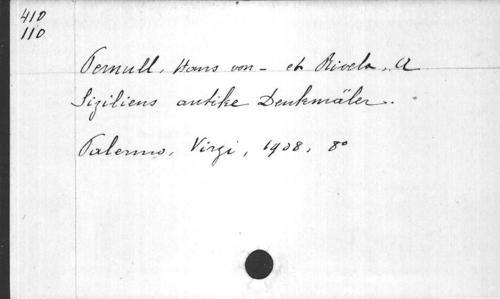 410
110
Pernull, Hans von - et Rivela, A
Siziliens antike Denkmäler.
Palermo, Virzi, 1908, 8°